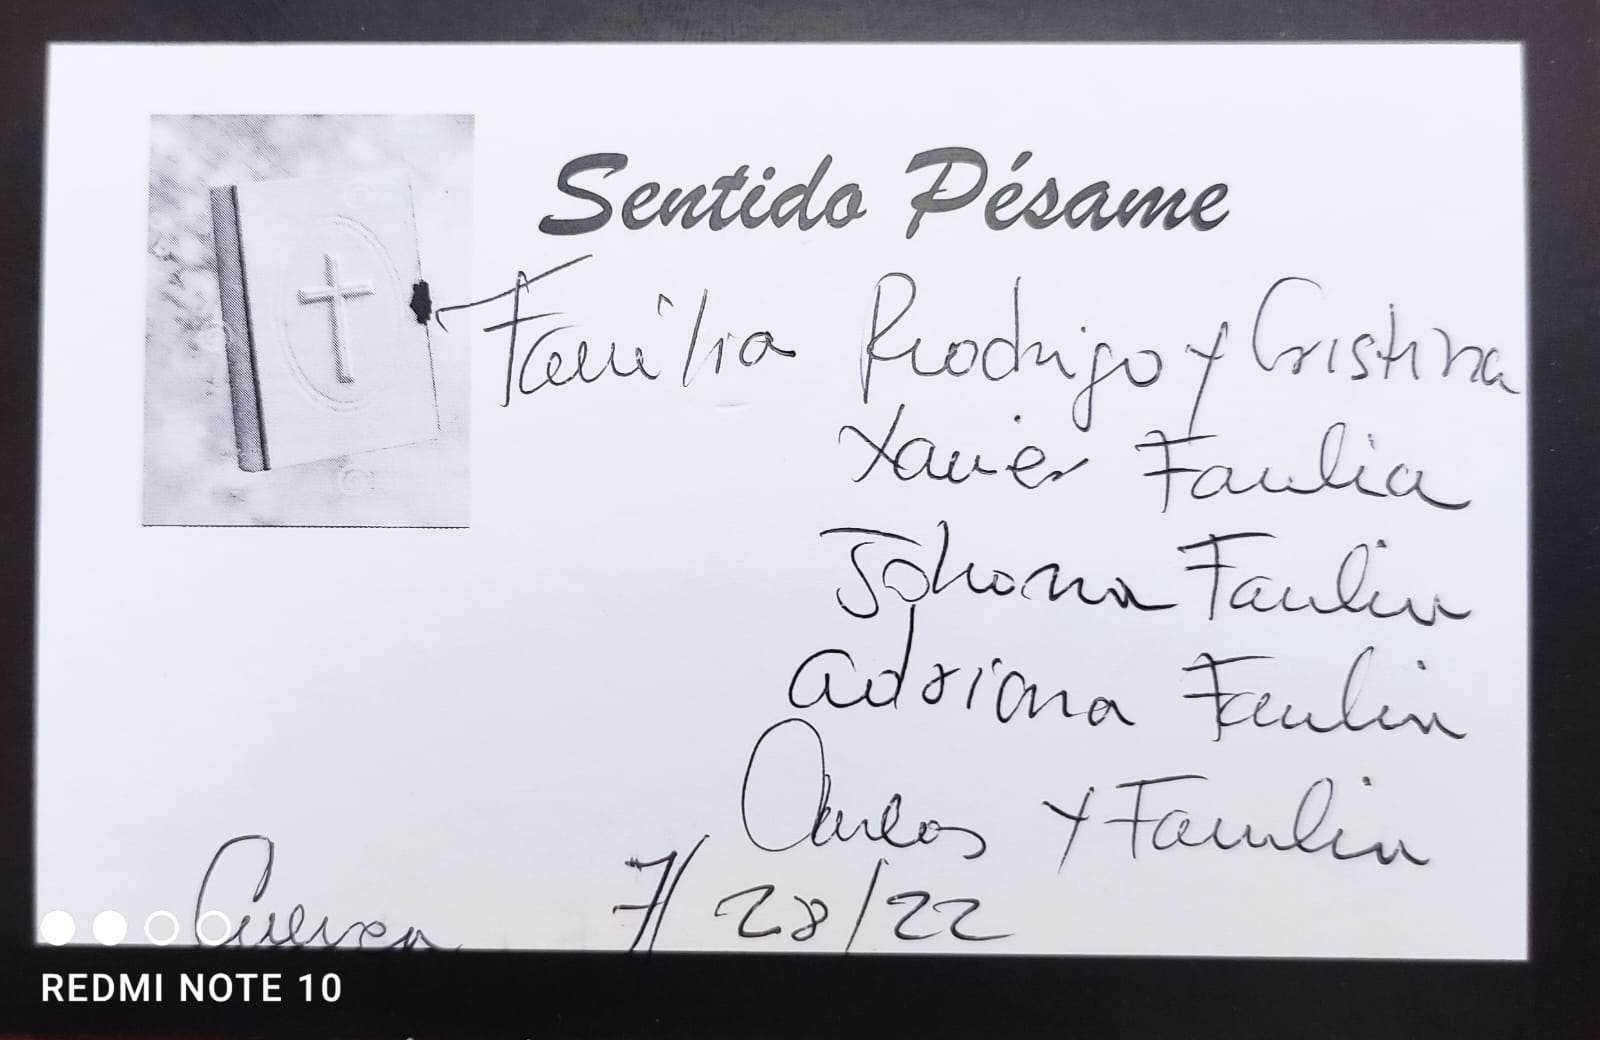 Sentido Pésame
Familia Rodrigo y Cristina
Xavier Familia
Johona Familia
Adriana Familia
Carlos y Familia
Cuenca 7/28/22
REDMI NOTE 10